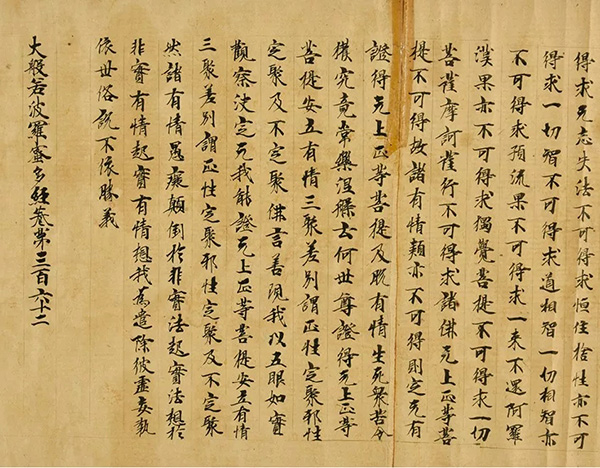 得求无忘失法不可得求恒住捨性亦不可
得求一切智不可得求道相智一切相智亦
不可得求預流果不可得求一來不還阿羅
漢果亦不可得求獨覺菩提不可得求一切
菩薩摩訶薩行不可得求諸佛无上正等菩
提不可得故諸有情類亦不可得則定无有
證得无上正等菩提及脫有情生死衆苦令
獲究竟常樂涅槃云何世尊證得无上正等
菩提安立有情三聚差別謂正性定聚邪性
定聚及不定聚佛言善現我以五眼如實
觀察決定无我能證无上正等菩提安立有情
三聚差別謂正性定聚邪性定聚及不定聚
然諸有情愚癡顛倒於非實法起實法想於
非實有情起實有情想我為遣除彼虛妄執
依世俗說不依勝義
大般若波羅蜜多經卷第三百六十二